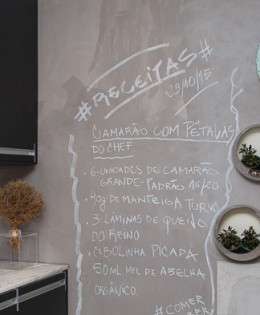 #RECEITAS#
29/10/15
CAMARÃO COM PÉTALAS
DO CHEF
• 6 UNIDADES DE CAMARÃO
GRANDE-PADRÃO
• 40g DE MANTEIGA TURVA
• 3 LÂMINAS DE QUEIJO
DO REINO
• CEBOLINHA PICADA
50ML MEL DE ABELHA
ORGÂNICO.
#COMER